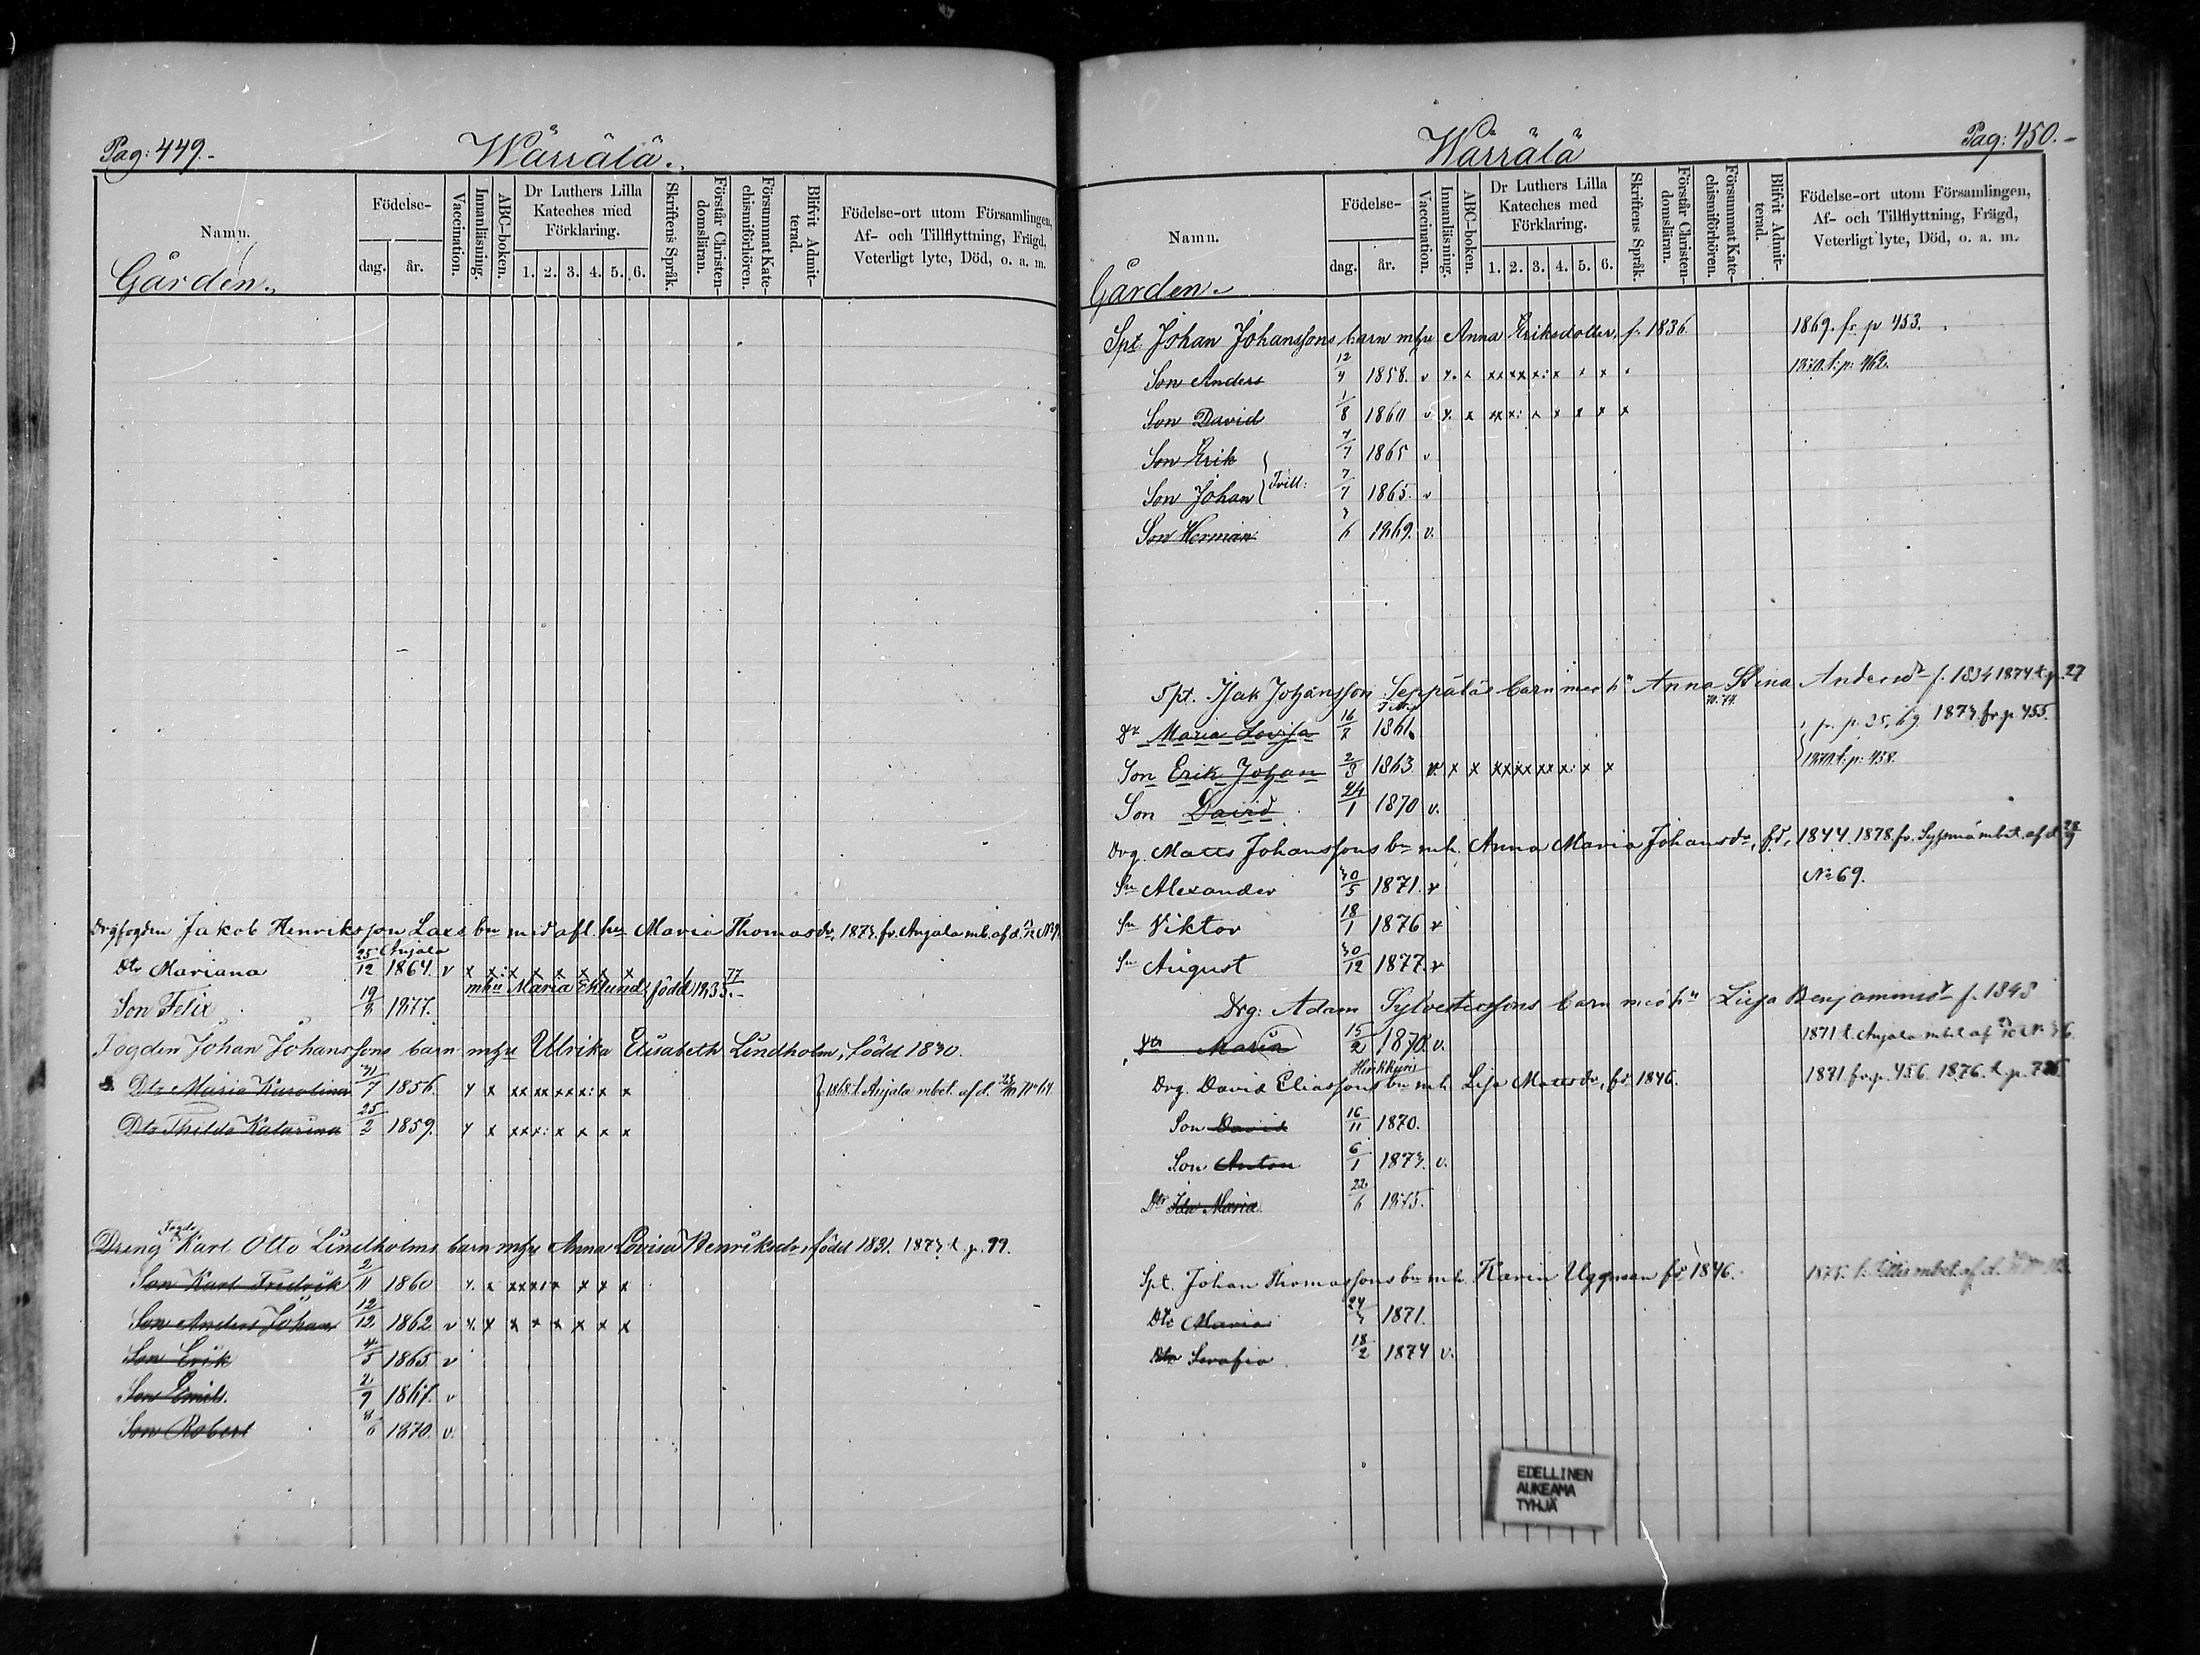 Pag: 449.
Wärrälä.
Namn.
Födelse-
dag.
år.
Vaccination.
Innanläsning.
ABC-boken.
Dr Luthers Lilla
Kateches med
Förklaring.
1. 2. 3. 4. 5. 6.
Skriftens Språk.
Förstår Christen-
domsläran.
Försummat Kate-
chismiförhören.
Blifvit Admit-
terad.
Födelse-ort utom Församlingen,
Af- och Tillflyttning, Frägd,
Veterligt lyte, Död, o. a. m.
Gården.
Drgfogden Jakob Henriksson Laes bn med afl. hu Maria Thomasdr, 1873. fr. Anjala mb. af d.
Anjala
Dtr Mariana 25/12 1864. v x x:x x x x x x
mhu Maria Eklund, född 1835.
Son Felix 19/8 1877.
Fogden Johan Johanssons barn mhu Ulrika Elisabeth Lindholm, född 1830.
Dtr Maria Karolina 31/7 1856. x x xx xx xx: x x 1868. t. Anjala mbet. af d.
Dtr Thilda Katarina 25/2 1859. x x xxx: x x x x
Fogde
Dreng Karl Otto Lindholms barn mhu Anna Lovisa Henriksdr, född 1831. 1873 t. p. 99.
Son Karl Fredrik 2/11 1860
Son Anders Johan 12/12 1862 v x. x x x x x x x
Son Erik 4/5 1865 v
Son Emil. 2/9 1867. v
Son Robert 8/6 1870. v.
Pag: 450.
Wärrälä
Namn.
Födelse-
dag.
år.
Vaccination.
Innanläsning.
ABC-boken.
Dr Luthers Lilla
Kateches med
Förklaring.
1. 2. 3. 4. 5. 6.
Skriftens Språk.
Förstår Christen-
domsläran.
Försummat Kate-
chismiförhören.
Blifvit Admit-
terad.
Födelse-ort utom Församlingen,
Af- och Tillflyttning, Frägd,
Veterligt lyte, Död, o. a. m.
Gården.
Spt: Johan Johanssons barn mhu Anna Eriksdotter, f. 1836 1869. fr p 453.
Son Anders 12/4 1858. v 1870. t. p: 462.
Son David 1/8 1860 v
Son Erik 7/7 1865 v
Tvill:
Son Johan 7/7 1865. v
Son Herman 3/6 1869. v.
Spt. Isak Johansson Seppäläs barn med hu Anna Stina Andersdr f. 1834 1874 t. p. 27
Dr Maria Lovisa 16/7 1861. fr. p. 25, 69 1873. fr. p. 455.
Son Erik Johan 2/3 1863 v. x x xx xx xx x: x x 1870. t. p: 458.
Son David 24/1 1870 v.
Drg. Matts Johanssons bn mh. Anna Maria Johansdr, fd, 1844. 1878. fr. Sippola mbet. af d.
No 69.
Sn Alexander 30/5 1871. v
Sn Viktor 18/1 1876 v
Sn August 30/12 1877. v
Drg: Adam Sylvesterssons barn med hu Lisa Benjaminsdr f. 1843
Dtr Maria 15/2 1870. v. 1871 t. Anjala mbet af
Drg. David Eliassons bn mh. Lisa Mattsdr, fd. 1846. 1871 fr. p. 456. 1876. t. p.
Son David 16/11 1870.
Son Anton 6/1 1873. v.
Dtr Ida Maria 22/6 1875.
Spt. Johan Thomassons bn mh. Karin Uggman fd 1846.
Dtr Maria 24/3 1871.
Dtr Serafia 18/2 1874 v.
EDELLINEN
AUKEAMA
TYHJÄ